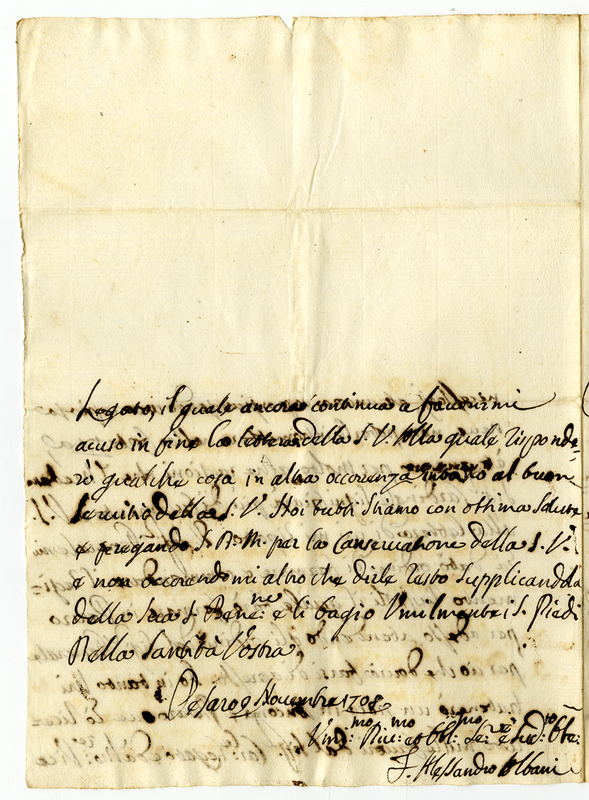 Legato, il quale ancora continua a favorirmi
acuso in fine la lettera della S. V. Alla quale risponde=
rò qualche cosa in altra occorenza al buon
servitio della S. V. Noi tutti stiamo con ottima salute
e pregando S. D. M. per la Conservatione della S. V.
e non occorendomi altro che dirle resto supplicandola
della Sua S. Bene:ne e li bagio Umilmente i S. Piedi
Della Santità Vostra.
Pesaro 9 Novembre 1708
Umil:mo Dev:mo et Obbl:mo Se:re e Sud:to
F. Alessandro Albani